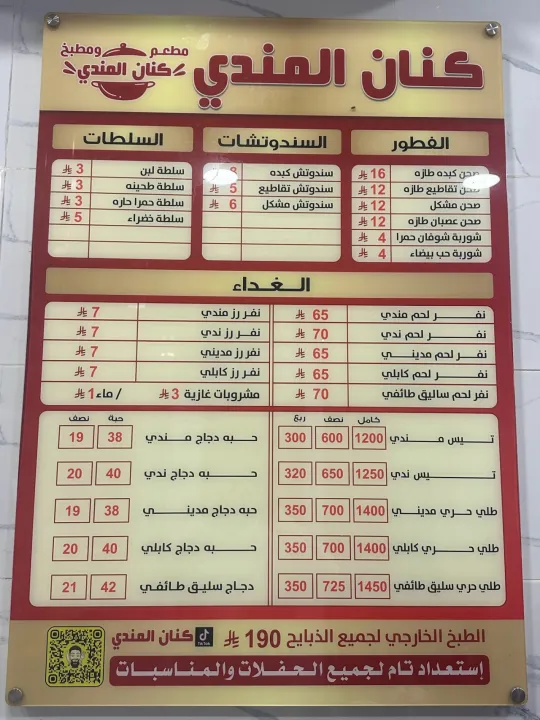 كنان المندي
مطعم ومطبخ
كنان المندي
الفطور
صحن كبده طازه 16
صحن تقاطيع طازه 12
صحن مشكل 12
صحن عصبان طازه 12
شوربة شوفان حمرا 4
شوربة حب بيضاء 4
السندوتشات
سندوتش كبده
سندوتش تقاطيع 5
سندوتش مشكل 6
السلطات
سلطة لبن 3
سلطة طحينه 3
سلطة حمرا حاره 3
سلطة خضراء 5
الغداء
نفر لحم مندي 65
نفر لحم ندي 70
نفر لحم مديني 65
نفر لحم كابلي 65
نفر لحم ساليق طائفي 70
نفر رز مندي 7
نفر رز ندي 7
نفر رز مديني 7
نفر رز كابلي 7
مشروبات غازية 3 / ماء 1
كامل نصف ربع
تيس مندي 1200 600 300
تيس ندي 1250 650 320
طلي حري مديني 1400 700 350
طلي حري كابلي 1400 700 350
طلي حري سليق طائفي 1450 725 350
حبة نصف
حبه دجاج مندي 38 19
حبه دجاج ندي 40 20
حبه دجاج مديني 38 19
حبه دجاج كابلي 40 20
دجاج سليق طائفي 42 21
الطبخ الخارجي لجميع الذبايح 190
TikTok كنان المندي
إستعداد تام لجميع الحفلات والمناسبات